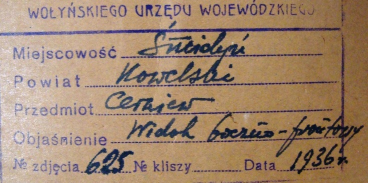 WOŁYŃSKIEGO URZĘDU WOJEWÓDZKIEGO
Miejscowość Śmidyń
Powiat Kowelski
Przedmiot Cerkiew
Objaśnienie Widok boczno-frontowy
№ zdjęcia 625 № kliszy Data 1936 r.